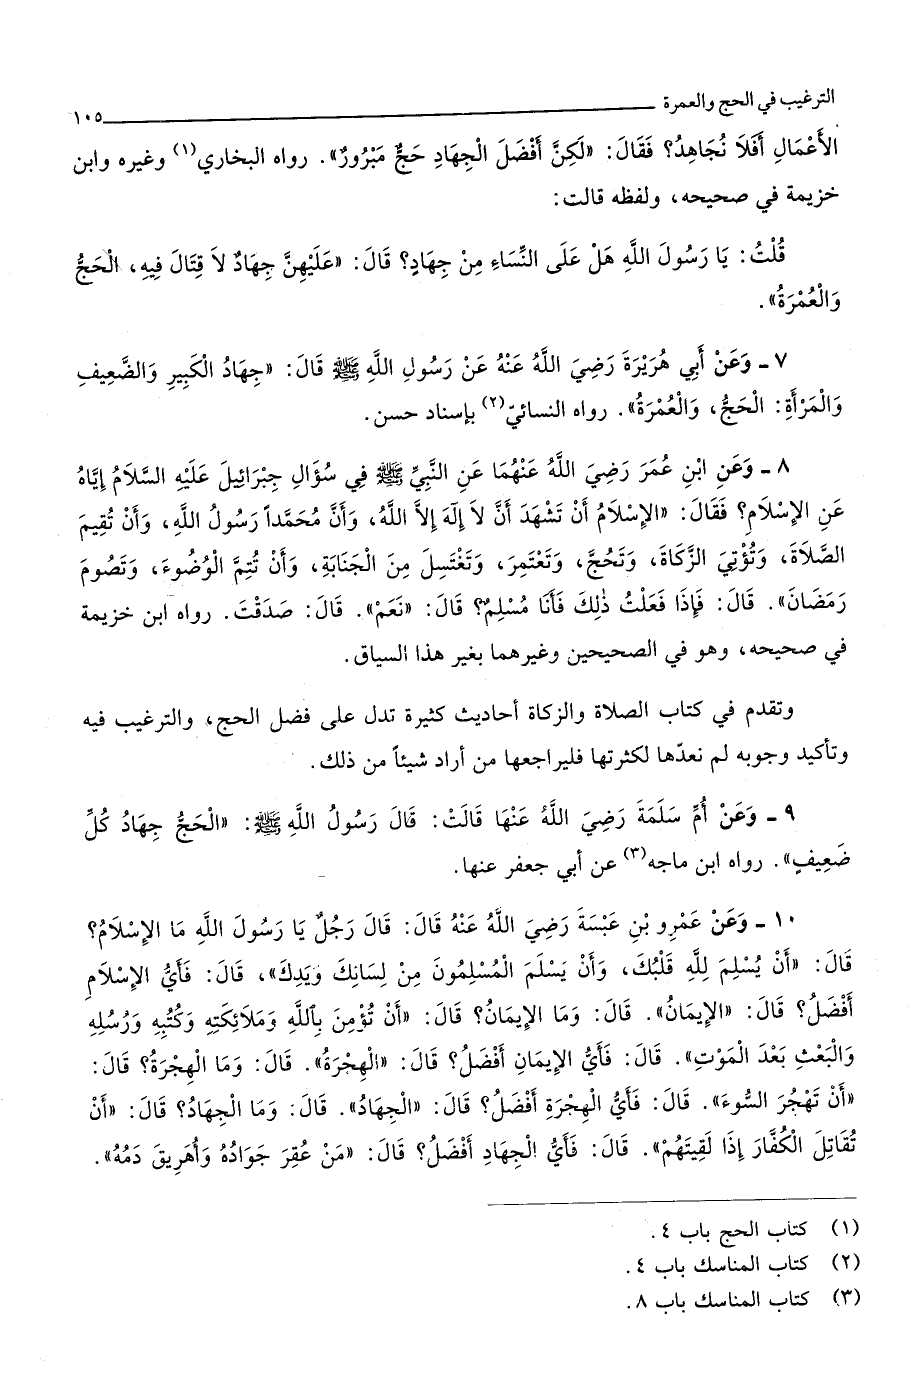 الترغيب في الحج والعمرة ١٠٥
الأَعْمَالِ أَفَلَا نُجَاهِدُ؟ فَقَالَ: «لَكِنَّ أَفْضَلَ الْجِهَادِ حَجٌّ مَبْرُورٌ». رواه البخاري(١) وغيره وابن
خزيمة في صحيحه، ولفظه قالت:
قُلْتُ: يَا رَسُولَ اللَّهِ هَلْ عَلَى النِّسَاءِ مِنْ جِهَادٍ؟ قَالَ: «عَلَيْهِنَّ جِهَادٌ لاَ قِتَالَ فِيهِ، الْحَجُّ
وَالْعُمْرَةُ».
٧ ـ وَعَنْ أَبِي هُرَيْرَةَ رَضِيَ اللَّهُ عَنْهُ عَنْ رَسُولِ اللَّهِ ﷺ قَالَ: «جِهَادُ الْكَبِيرِ وَالضَّعِيفِ
وَالْمَرْأَةِ: الْحَجُّ، وَالْعُمْرَةُ». رواه النسائيّ(٢) بإسناد حسن.
٨ ـ وَعَنِ ابْنِ عُمَرَ رَضِيَ اللَّهُ عَنْهُمَا عَنِ النَّبِيِّ ﷺ فِي سُؤَالِ جِبْرَائِيلَ عَلَيْهِ السَّلَامُ إِيَّاهُ
عَنِ الإِسْلَامِ؟ فَقَالَ: «الإِسْلَامُ أَنْ تَشْهَدَ أَنَّ لاَ إِلَهَ إِلاَّ اللَّهُ، وَأَنَّ مُحَمَّداً رَسُولُ اللَّهِ، وَأَنْ تُقِيمَ
الصَّلَاةَ، وَتُؤْتِيَ الزَّكَاةَ، وَتَحُجَّ، وَتَعْتَمِرَ، وَتَغْتَسِلَ مِنَ الْجَنَابَةِ، وَأَنْ تُتِمَّ الْوُضُوءَ، وَتَصُومَ
رَمَضَانَ». قَالَ: فَإِذَا فَعَلْتُ ذٰلِكَ فَأَنَا مُسْلِمٌ؟ قَالَ: «نَعَمْ». قَالَ: صَدَقْتَ. رواه ابن خزيمة
في صحيحه، وهو في الصحيحين وغيرهما بغير هذا السياق.
وتقدم في كتاب الصلاة والزكاة أحاديث كثيرة تدل على فضل الحج، والترغيب فيه
وتأكيد وجوبه لم نعدّها لكثرتها فليراجعها من أراد شيئاً من ذلك.
٩ ـ وَعَنْ أُمِّ سَلَمَةَ رَضِيَ اللَّهُ عَنْهَا قَالَتْ: قَالَ رَسُولُ اللَّهِ ﷺ: «الْحَجُّ جِهَادُ كُلِّ
ضَعِيفٍ». رواه ابن ماجه(٣) عن أبي جعفر عنها.
١٠ ـ وَعَنْ عَمْرِو بْنِ عَبَسَةَ رَضِيَ اللَّهُ عَنْهُ قَالَ: قَالَ رَجُلٌ يَا رَسُولَ اللَّهِ مَا الإِسْلَامُ؟
قَالَ: «أَنْ يُسْلِمَ لِلَّهِ قَلْبُكَ، وَأَنْ يَسْلَمَ الْمُسْلِمُونَ مِنْ لِسَانِكَ وَيَدِكَ»، قَالَ: فَأَيُّ الإِسْلَامِ
أَفْضَلُ؟ قَالَ: «الإِيمَانُ». قَالَ: وَمَا الإِيمَانُ؟ قَالَ: «أَنْ تُؤْمِنَ بِاللَّهِ وَمَلَائِكَتِهِ وَكُتُبِهِ وَرُسُلِهِ
وَالْبَعْثِ بَعْدَ الْمَوْتِ». قَالَ: فَأَيُّ الإِيمَانِ أَفْضَلُ؟ قَالَ: «الْهِجْرَةُ». قَالَ: وَمَا الْهِجْرَةُ؟ قَالَ:
«أَنْ تَهْجُرَ السُّوءَ». قَالَ: فَأَيُّ الْهِجْرَةِ أَفْضَلُ؟ قَالَ: «الْجِهَادُ». قَالَ: وَمَا الْجِهَادُ؟ قَالَ: «أَنْ
تُقَاتِلَ الْكُفَّارَ إِذَا لَقِيتَهُمْ». قَالَ: فَأَيُّ الْجِهَادِ أَفْضَلُ؟ قَالَ: «مَنْ عُقِرَ جَوَادُهُ وَأُهَرِيقَ دَمُهُ».
(١) كتاب الحج باب ٤.
(٢) كتاب المناسك باب ٤.
(٣) كتاب المناسك باب ٨.